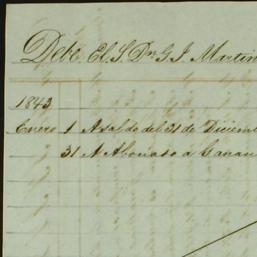 Debe El S. Dn. G. J. Martin
1843
Enero 1 A saldo del 31 de Diciem
31 A Abonado a